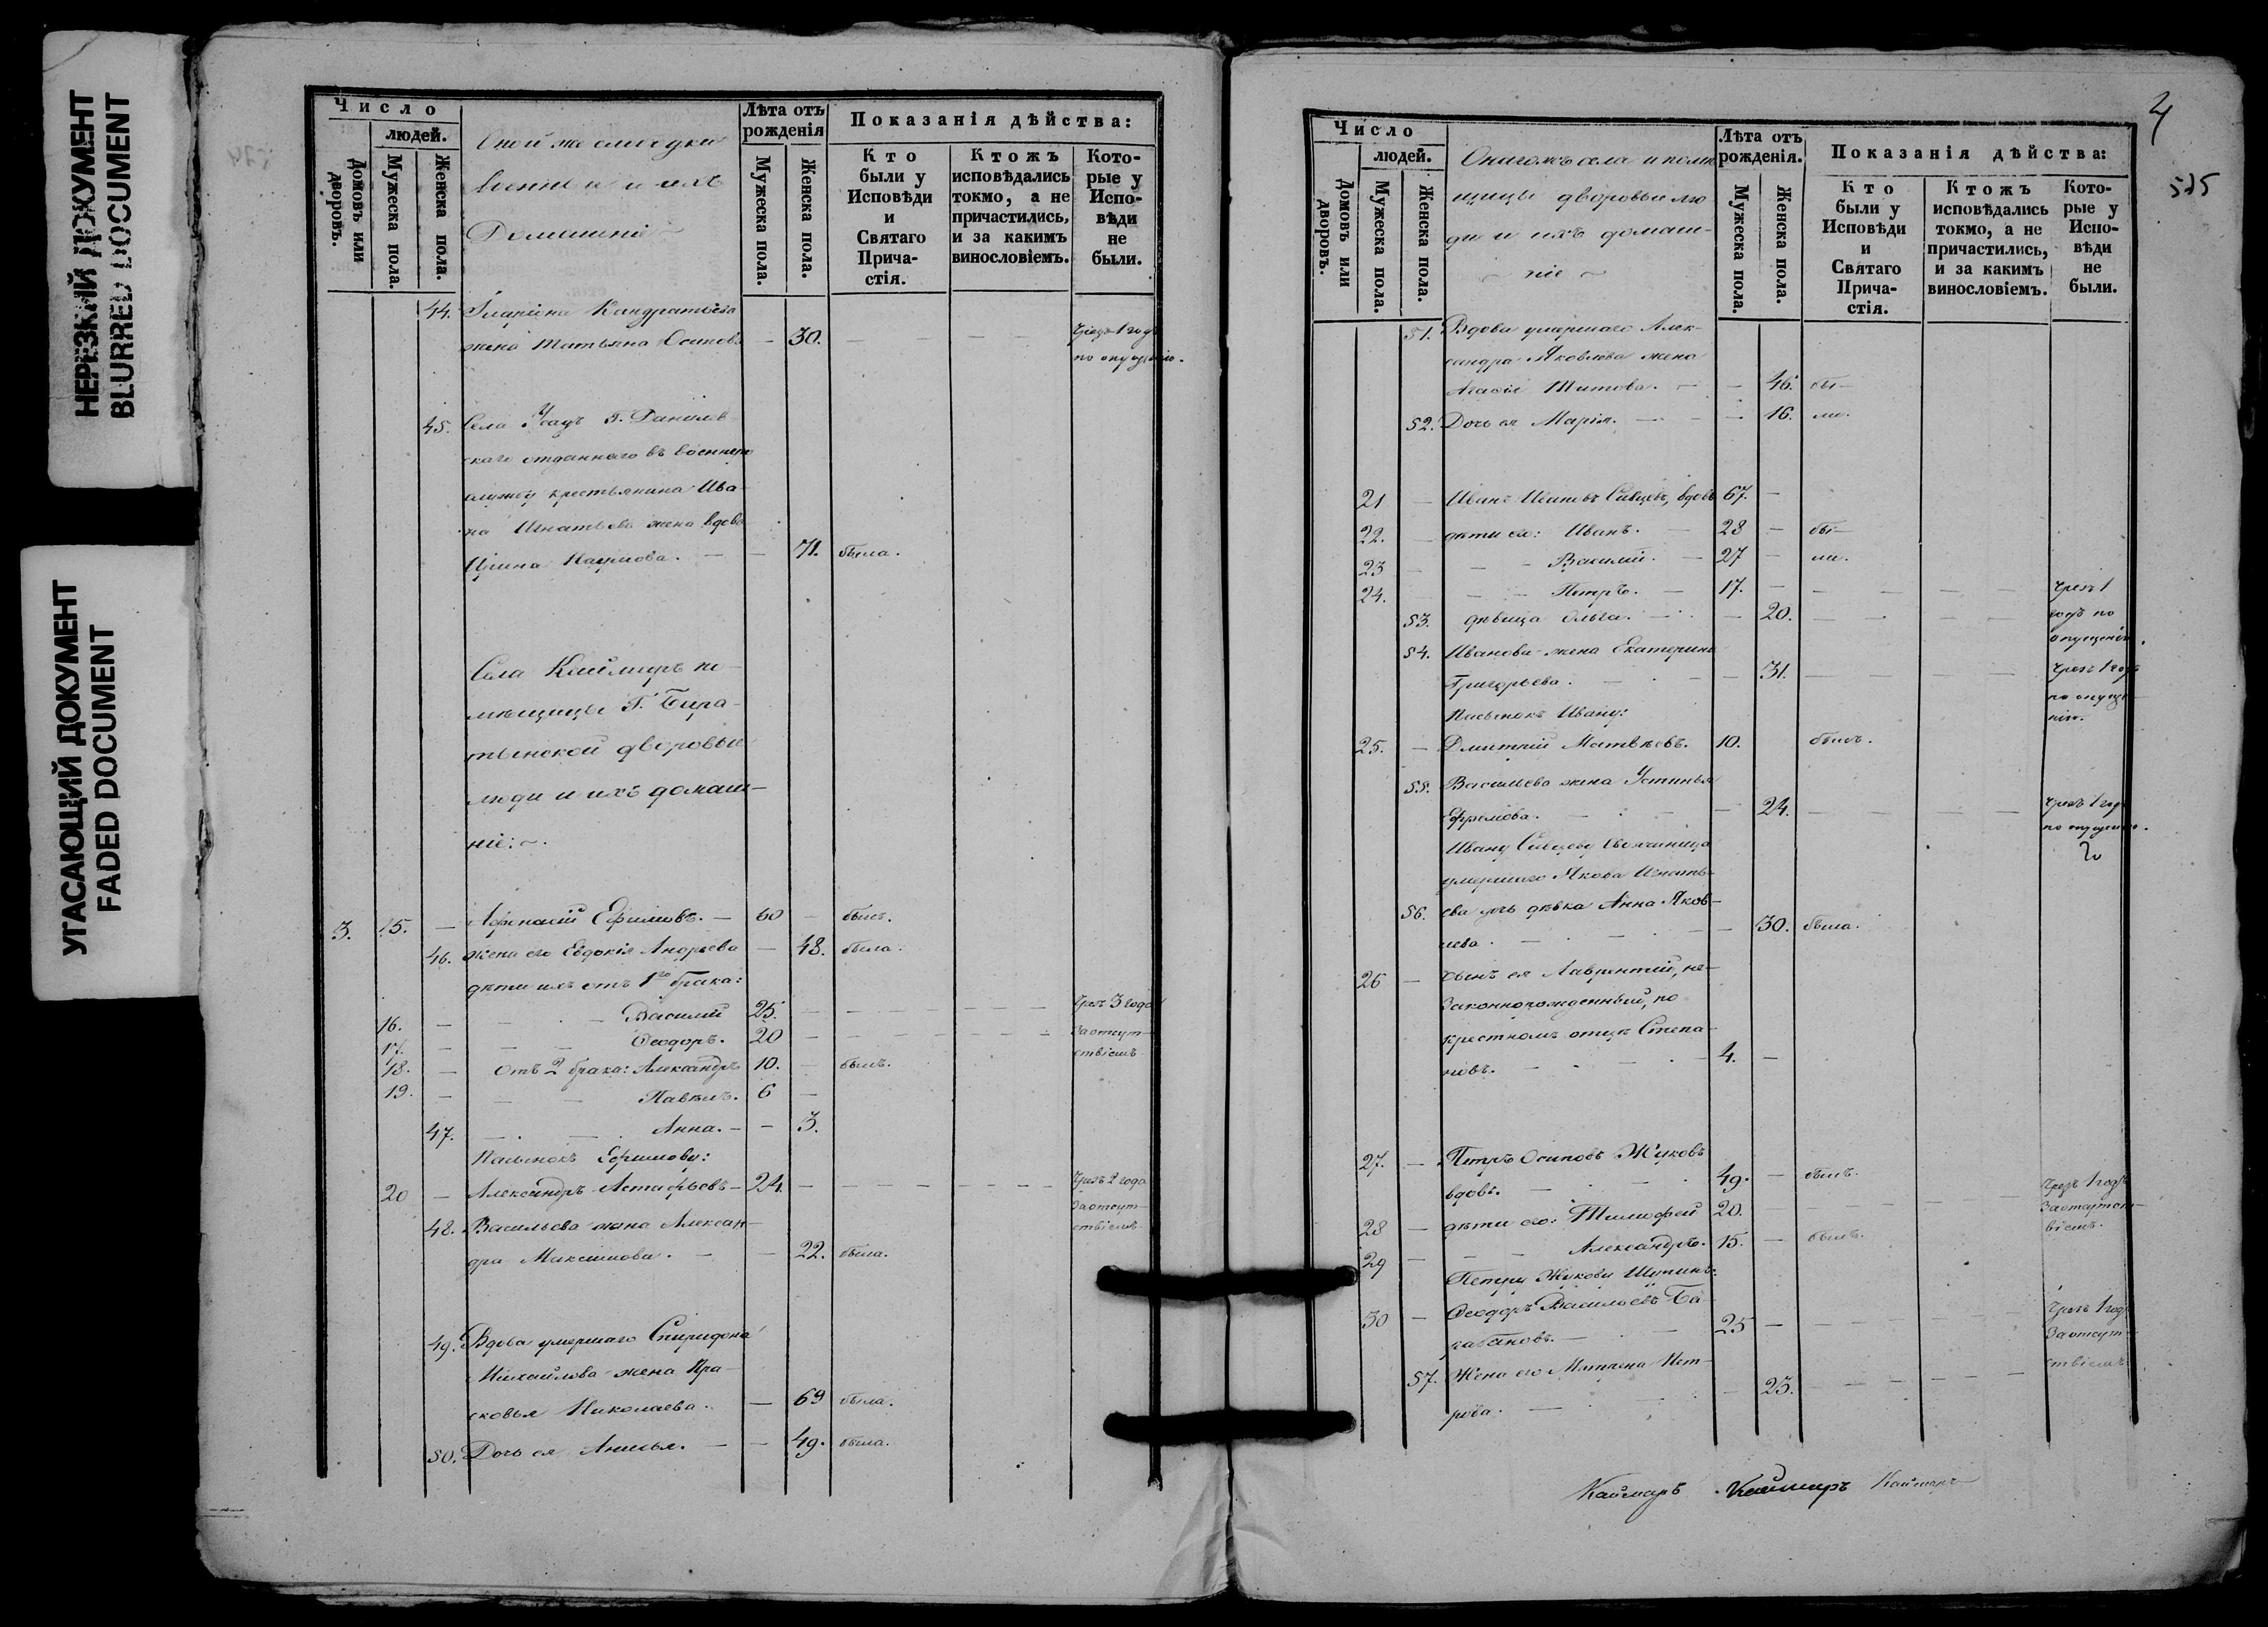 НЕРЕЗКИЙ ДОКУМЕНТ
BLURRED DOCUMENT
УГАСАЮЩИЙ ДОКУМЕНТ
FADED DOCUMENT
Число
людей.
Домовъ или дворовъ.
Мужеска пола.
Женска пола.
Оной же слободки
и ихъ
Домашніе
Лѣта отъ рожденія
Мужеска пола.
Женска пола.
Показанія дѣйства:
Кто были у Исповѣди и Святаго Прича-стія.
Ктожъ исповѣдались токмо, а не причастились, и за какимъ винословіемъ.
Кото-рые у Испо-вѣди не были.
44. Кандратьева
жена Татьяна Осипова — 30. — — — — чрезъ 1 годъ
по опущенію.
45. Села г.
скаго отданнаго въ военную
службу крестьянина Ива-
на Игнатьева жена вдова
Ирина Наумова. — — 71. была.
Села Каймаръ по-
мѣщицы Г.
дворовые
люди и ихъ домаш-
ніе: ~.
3. 15. — Афанасій Ефимовъ. — 60 — былъ.
46. Жена его Евдокія Андреева — 48. была.
дѣти ихъ отъ 1го брака:
16. — Василій 25. — — — — чрезъ 3 года
17. — — — Ѳеодоръ. 20 — — — — За отсут-
ствіемъ
18. — Отъ 2 брака: Александръ 10. — былъ.
19. — — — Павелъ. 6 —
47. — — Анна. — — 3.
Пасынокъ Ефимову:
20 — Александръ Астафьевъ — 24. — — — — — чрезъ 2 года
За отсут-
ствіемъ
48. Васильева жена Алексан-
дра Максимова. — — 22. была.
49. Вдова умершаго Спиридона
Михайлова жена Пра-
сковья Николаева. — 69 была.
50. Дочь ея Анисья. — — 49. была.
4
575
Число
людей.
Домовъ или дворовъ.
Мужеска пола.
Женска пола.
Онагожъ села и помѣ-
щицы дворовые лю-
ди и ихъ домаш-
~ ніе ~
Лѣта отъ рожденія.
Мужеска пола.
Женска пола.
Показанія дѣйства:
Кто были у Исповѣди и Святаго Прича-стія.
Ктожъ исповѣдались токмо, а не причастились, и за какимъ винословіемъ.
Кото-рые у Испо-вѣди не были.
51. Вдова умершаго Алек-
сандра Яковлева жена
Титова. — — 46. бы-
52. Дочь ея Марія. — — 16. ли.
21 — Иванъ Ивановъ Сивцевъ, вдовъ 67. —
22. — дѣти его: Иванъ. — 28 — бы-
23 — — — Василій. — 27 — ли.
24. — — Петръ. — 17. — — — — — чрезъ 1
53. дѣвица Ольга. — — 20. — — — — годъ по
опущенію.
54. Иванова жена Екатерина
Григорьева. — — — 31. — — — — чрезъ 1 годъ
по опуще-
нію.
Пасынокъ Ивану:
25. — Дмитрій Матвѣевъ. 10. былъ.
55. Васильева жена Устинья
Ефремова. — — — 24. — — — чрезъ 1 годъ
по опущенію.
Ивану Сивцеву Своячиница
умершаго Якова Игнатье-
56. ва дочь дѣвка Анна Яков-
лева. — — — 30. была.
26 — сынъ ея Лаврентій, не-
законнорожденный, по
крестномъ отцѣ Степа-
новъ. — — — 4. —
27. — Петръ Осиповъ Жуковъ
вдовъ. — — 49. — былъ.
28 — дѣти его: Тимофей 20. — — — — чрезъ 1 годъ
За отсутст-
віемъ.
29 — — — Александръ. 15. — былъ.
Петру Жукову Шуринъ:
30 — Ѳеодоръ Васильевъ Ба-
кановъ. — — 25 — — — — чрезъ 1 годъ
За отсут-
ствіемъ
57. Жена его Матрена Пет-
рова. — — — 23. — — — —
Каймаръ Каймаръ Каймаръ